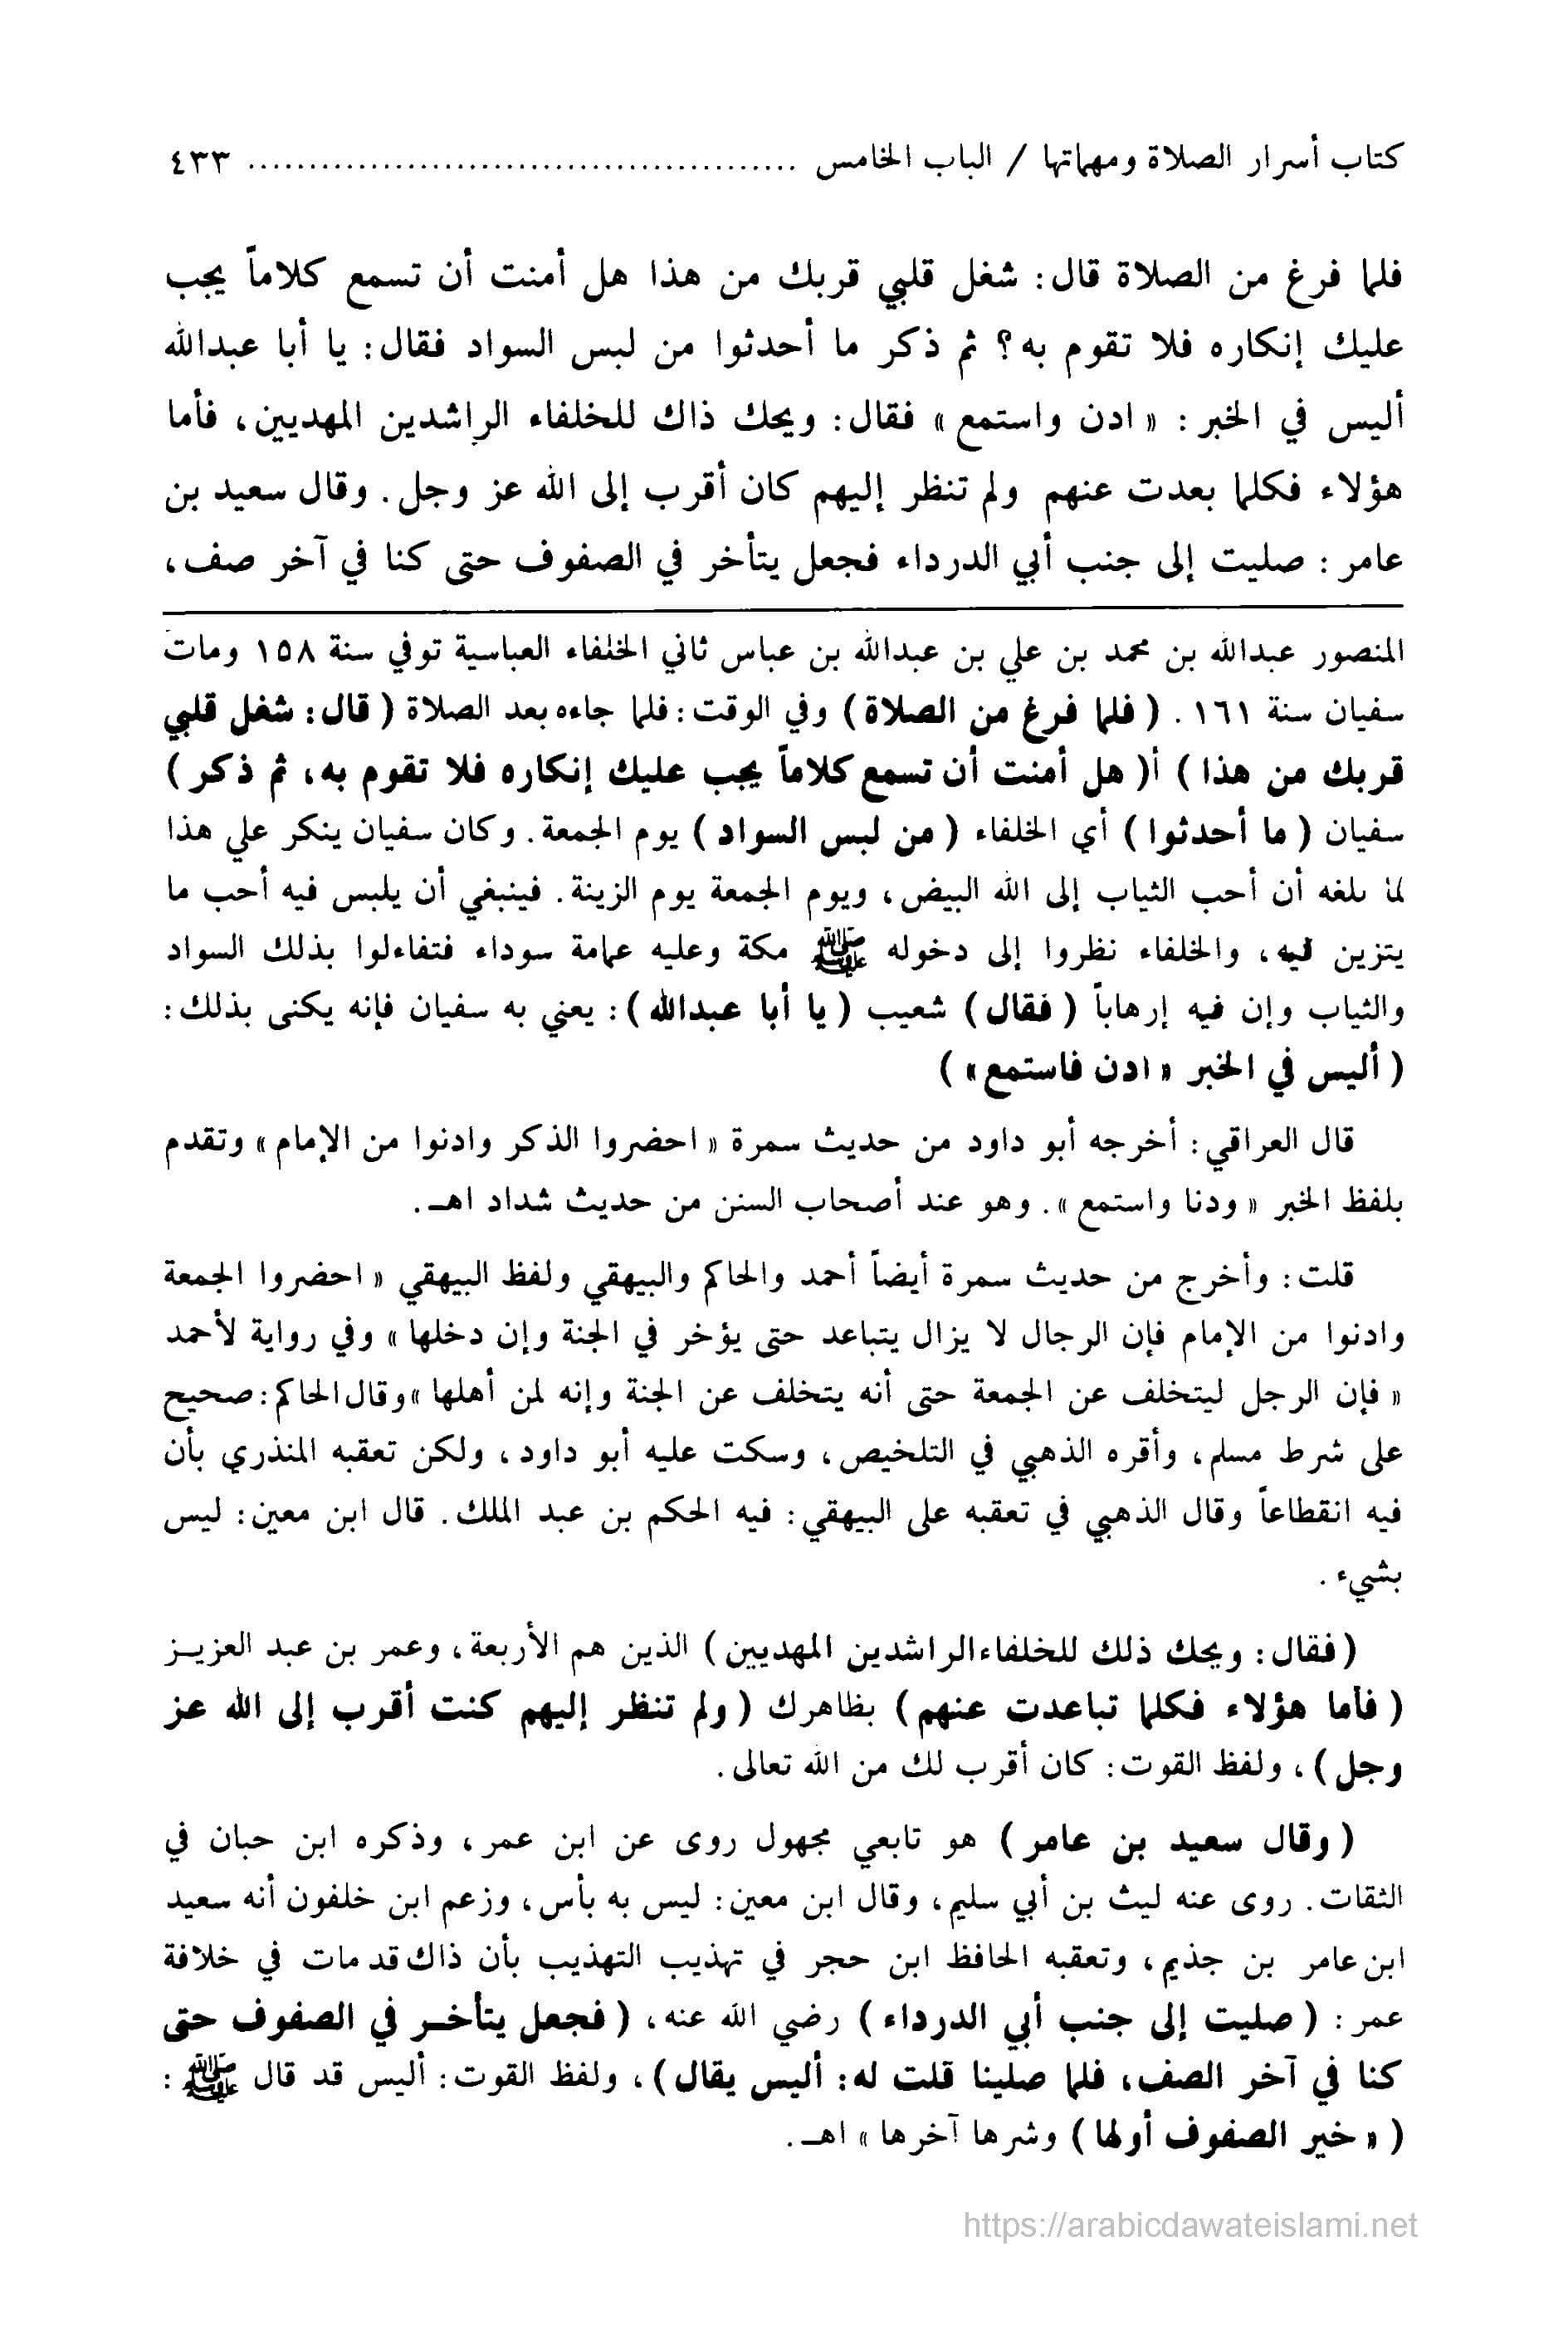 كتاب أسرار الصلاة ومهماتها / الباب الخامس ............................................ ٤٣٣
فلما فرغ من الصلاة قال: شغل قلبي قربك من هذا هل أمنت أن تسمع كلاماً يجب
عليك إنكاره فلا تقوم به؟ ثم ذكر ما أحدثوا من لبس السواد فقال: يا أبا عبدالله
أليس في الخبر: « ادن واستمع » فقال: ويحك ذاك للخلفاء الراشدين المهديين، فأما
هؤلاء فكلما بعدت عنهم ولم تنظر إليهم كان أقرب إلى الله عز وجل. وقال سعيد بن
عامر: صليت إلى جنب أبي الدرداء فجعل يتأخر في الصفوف حتى كنا في آخر صف،
المنصور عبدالله بن محمد بن علي بن عبدالله بن عباس ثاني الخلفاء العباسية توفي سنة ١٥٨ ومات
سفيان سنة ١٦١. ( فلما فرغ من الصلاة ) وفي الوقت: فلما جاءه بعد الصلاة ( قال: شغل قلبي
قربك من هذا ) أ( هل أمنت أن تسمع كلاماً يجب عليك إنكاره فلا تقوم به، ثم ذكر )
سفيان ( ما أحدثوا ) أي الخلفاء ( من لبس السواد ) يوم الجمعة. وكان سفيان ينكر علي هذا
لما بلغه أن أحب الثياب إلى الله البيض، ويوم الجمعة يوم الزينة. فينبغي أن يلبس فيه أحب ما
يتزين فيه، والخلفاء نظروا إلى دخوله ﷺ مكة وعليه عمامة سوداء فتفاءلوا بذلك السواد
والثياب وإن فيه إرهاباً ( فقال ) شعيب ( يا أبا عبدالله ): يعني به سفيان فإنه يكنى بذلك:
( أليس في الخبر « ادن فاستمع » )
قال العراقي: أخرجه أبو داود من حديث سمرة « احضروا الذكر وادنوا من الإمام » وتقدم
بلفظ الخبر « ودنا واستمع ». وهو عند أصحاب السنن من حديث شداد اهـ.
قلت: وأخرج من حديث سمرة أيضاً أحمد والحاكم والبيهقي ولفظ البيهقي « احضروا الجمعة
وادنوا من الإمام فإن الرجال لا يزال يتباعد حتى يؤخر في الجنة وإن دخلها » وفي رواية لأحمد
« فإن الرجل ليتخلف عن الجمعة حتى أنه يتخلف عن الجنة وإنه لمن أهلها » وقال الحاكم: صحيح
على شرط مسلم، وأقره الذهبي في التلخيص، وسكت عليه أبو داود، ولكن تعقبه المنذري بأن
فيه انقطاعاً وقال الذهبي في تعقبه على البيهقي: فيه الحكم بن عبد الملك. قال ابن معين: ليس
بشيء.
(فقال: ويحك ذلك للخلفاء الراشدين المهديين) الذين هم الأربعة، وعمر بن عبد العزيـز
( فأما هؤلاء فكلما تباعدت عنهم ) بظاهرك ( ولم تنظر إليهم كنت أقرب إلى الله عز
وجل )، ولفظ القوت: كان أقرب لك من الله تعالى.
( وقال سعيد بن عامر ) هو تابعي مجهول روى عن ابن عمر، وذكره ابن حبان في
الثقات. روى عنه ليث بن أبي سليم، وقال ابن معين: ليس به بأس، وزعم ابن خلفون أنه سعيد
ابن عامر بن جذيم، وتعقبه الحافظ ابن حجر في تهذيب التهذيب بأن ذاك قد مات في خلافة
عمر: ( صليت إلى جنب أبي الدرداء ) رضي الله عنه، ( فجعل يتأخـر في الصفوف حتى
كنا في آخر الصف، فلما صلينا قلت له: أليس يقال )، ولفظ القوت: أليس قد قال ﷺ :
( « خير الصفوف أولها ) وشرها آخرها » اهـ.
https://arabicdawateislami.net